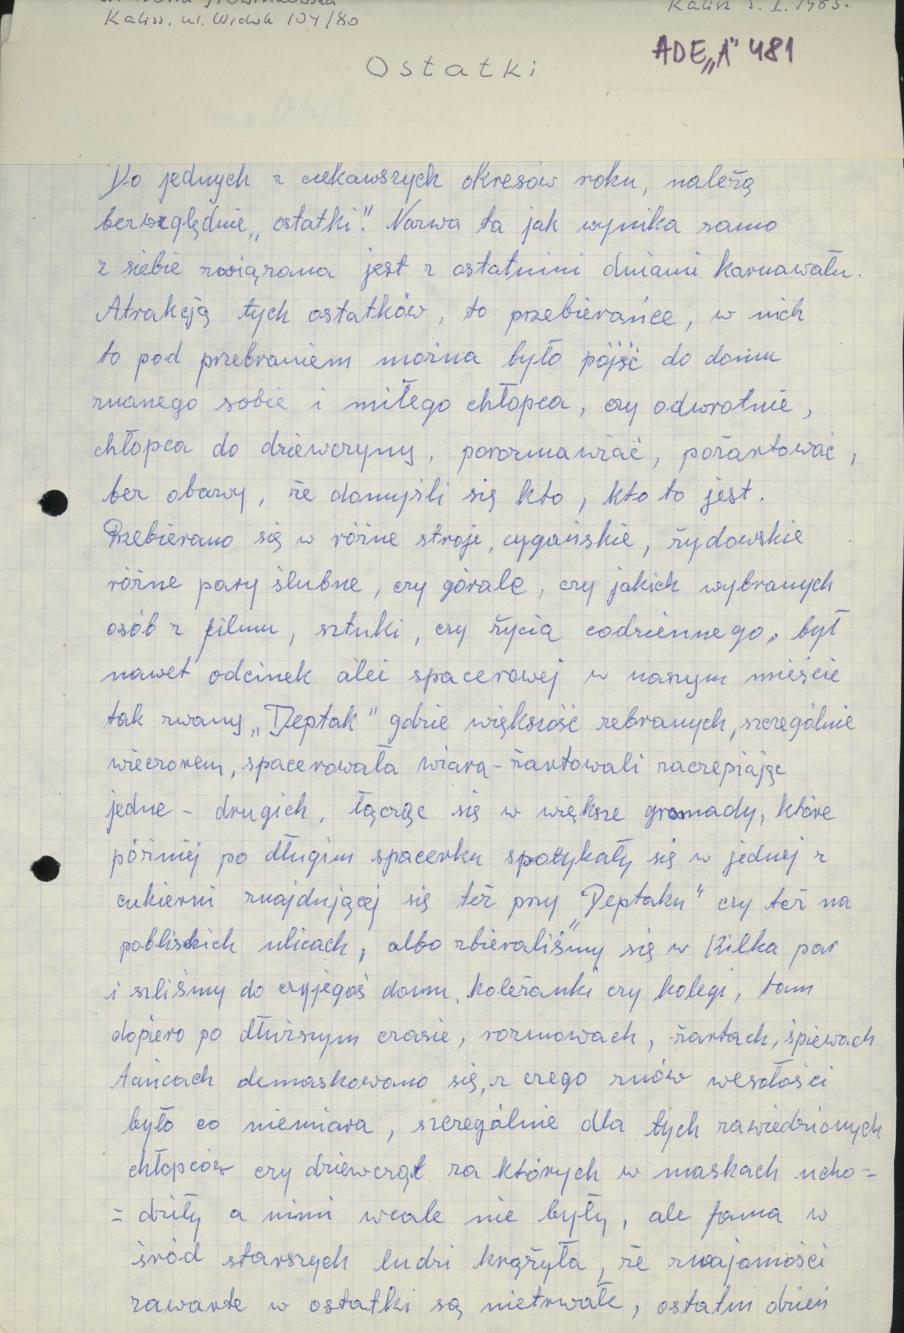 Kalisz, ul. Widok 104/80
Kalisz 5. I. 1985.
ADE „A” 481
Ostatki
Do jednych z ciekawszych okresów roku, należą
bezwzględnie „ostatki”. Nazwa ta jak wynika samo
z siebie związana jest z ostatnimi dniami karnawału.
Atrakcją tych ostatków, to przebierańce, w nich
to pod przebraniem można było pójść do domu
znanego sobie i miłego chłopca, czy odwrotnie,
chłopca do dziewczyny, porozmawiać, pożartować,
bez obawy, że domyśli się kto, kto to jest.
Przebierano się w różne stroje, cygańskie, żydowskie
różne pary ślubne, czy górale, czy jakich wybranych
osób z filmu, sztuki, czy życia codziennego, był
nawet odcinek alei spacerowej w naszym mieście
tak zwany „Deptak” gdzie większość zebranych, szczególnie
wieczorem, spacerowała wiara - żartowali zaczepiając
jedne - drugich, łącząc się w większe gromady, które
później po długim spacerku spotykały się w jednej z
cukierni znajdującej się też przy „Deptaku” czy też na
pobliskich ulicach, albo zbieraliśmy się w kilka par
i szliśmy do czyjegoś domu, koleżanki czy kolegi, tam
dopiero po dłuższym czasie, rozmowach, żartach, śpiewach
tańcach demaskowano się, z czego znów wesołości
było co niemiara, szczególnie dla tych zawiedzionych
chłopców czy dziewcząt za których w maskach ucho=
= dziły a nimi wcale nie były, ale fama w
śród starszych ludzi krążyła, że znajomości
zawarte w ostatki są nietrwałe, ostatni dzień